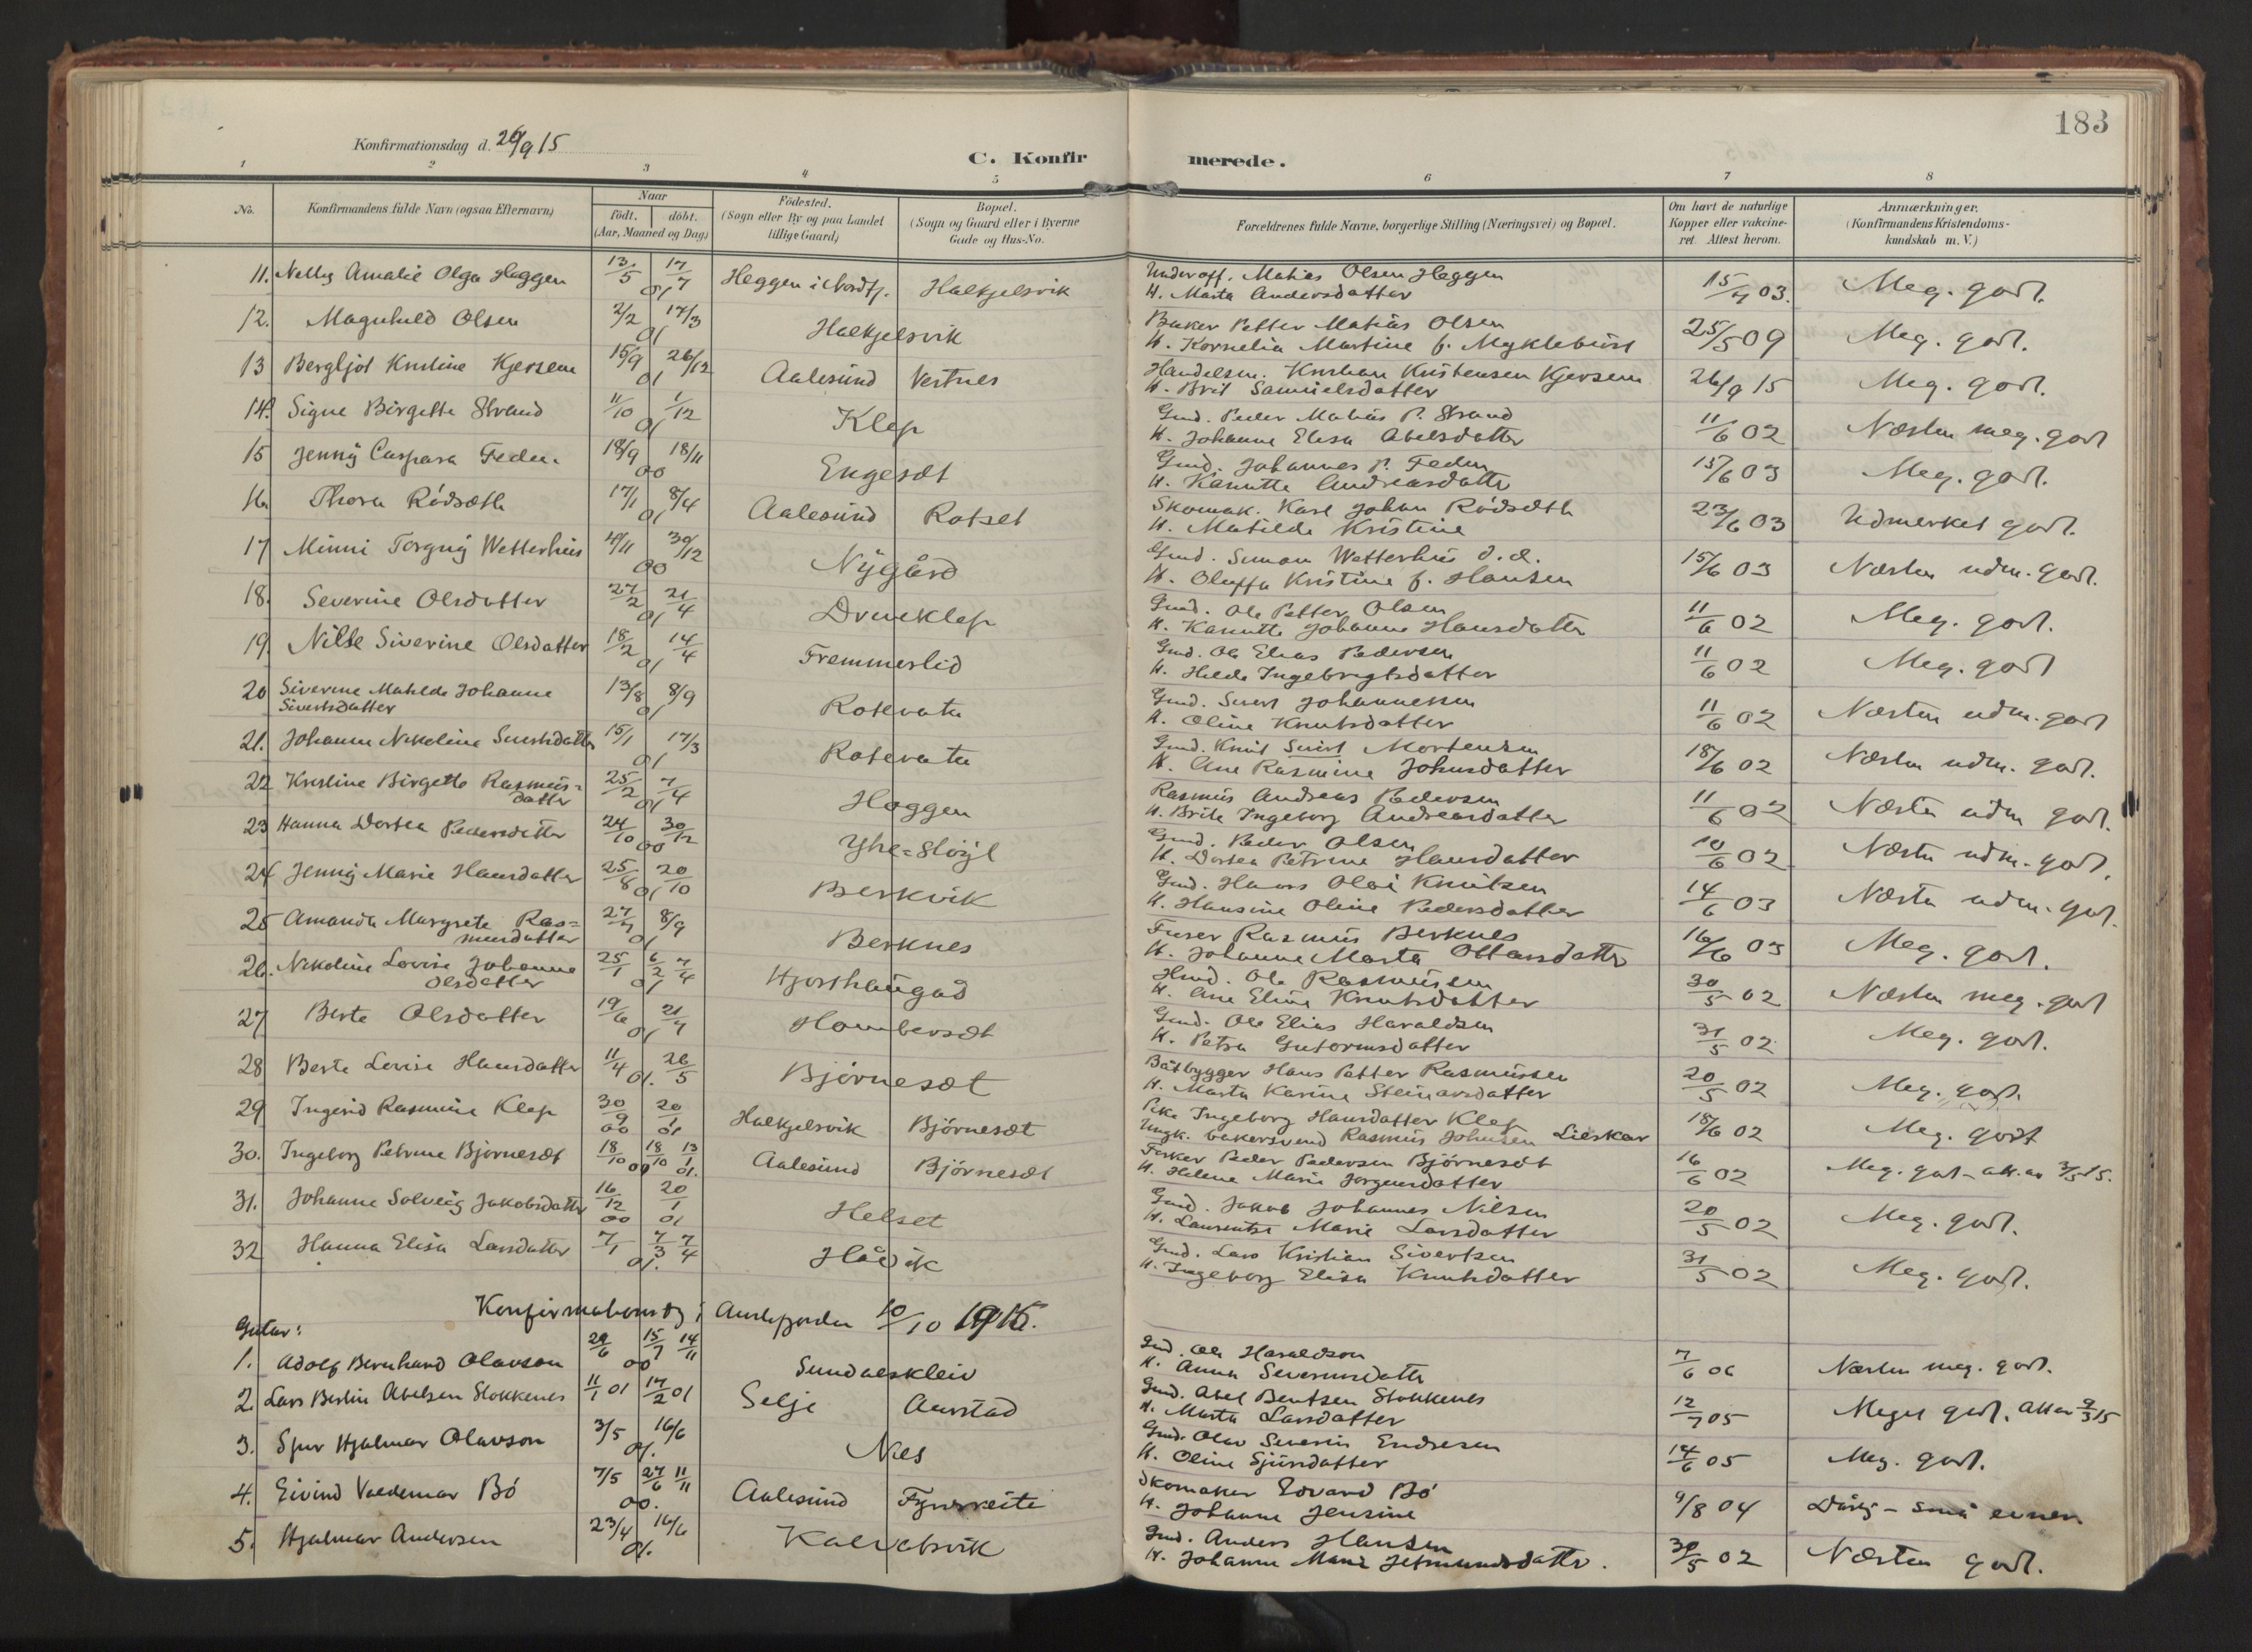 183
Konfirmationsdag d. 26/9 15
C. Konfirmerede.
1 2 3 4 5 6 7 8
No. Konfirmandens fulde Navn (ogsaa Efternavn) Naar födt. döbt. (Aar, Maaned og Dag) Födested. (Sogn eller By og paa Landet tillige Gaard) Bopæl. (Sogn og Gaard eller i Byerne Gade og Hus-No. Forældrenes fulde Navne, borgerlige Stilling (Næringsvei) og Bopæl. Om havt de naturlige Kopper eller vakcineret. Attest herom. Anmærkninger. (Konfirmandens Kristendomskundskab m. V.)
11. Nelly Amalie Olga Heggen 13/5 17/7 01 Heggen i Nordfj. Halkjelsvik Underoff. Matias Olsen Heggen 15/7 03. Meg. godt.
H. Marta Andersdatter
12. Maguhild Olsen 2/2 17/3 01 Halkjelsvik Baker Petter Matias Olsen 25/5 09 Meg. godt.
H. Kornelia Martine f. Myklebust
13 Bergljot Kristine Kjersem 15/9 26/12 01 Aalesund Vestnes Handelsm. Kristian Kristensen Kjersem 26/9 15 Meg. godt.
H. Brit Samuelsdatter
14. Signe Birgette Strand 11/10 1/12 01 Klep Gmd. Peder Matias P. Strand 11/6 02 Næsten meg. godt
H. Johanne Elisa Abelsdatter
15 Jenny Caspara Feden 18/9 18/11 00 Engeset Gmd. Johannes P. Feden 15/6 03 Meg. godt.
H. Kanutte Andreasdatter
16. Thora Rödsæth 17/1 8/4 01 Aalesund Rotset Skomak. Karl Johan Rödsæth 23/6 03 Udmerket godt.
H. Matilde Kristine
17 Minni Torguy Wetterhus /11 30/12 00 Nygård Gmd. Simon Wetterhus d.d. 15/6 03 Næsten udm. godt.
H. Oluffa Kristine f. Hansen
18. Severine Olsdatter 27/2 21/4 01 Driveklep Gmd. Ole Petter Olsen 11/6 02 Meg. godt.
H. Kanutte Johanne Hansdatter
19. Nilse Siverine Olsdatter 18/2 14/4 01 Fremmerlid Gmd. Ole Elias Pedersen 11/6 02 Meg. godt
H. Hilda Ingebrigtsdatter
20 Siverine Matilde Johanne 13/8 8/9 01 Rotevatn Gmd. Sivert Johannessen 11/6 02 Næsten udm. godt
Sivertsdatter H. Oline Knutsdatter
21. Johanne Nikoline Sivertsdatter 15/1 17/3 01 Rotevatn Gmd. Knut Sivert Mortensen 18/6 02 Næsten udm. godt.
H. Ane Rasmine Johnsdatter
22 Kristine Birgette Rasmus= 25/2 7/4 01 Heggen Rasmus Andreas Pedersen 11/6 02 Næsten udm godt.
datter H. Brite Ingeborg Andreasdatter
23 Hanna Dortea Pedersdatter 24/10 30/12 00 Yhe=Slöyl Gmd. Peder Olsen 10/6 02 Næsten udm. godt.
H. Dortea Petrine Hansdatter
24 Jenny Marie Hansdatter 25/8 20/10 01 Berkvik Gmd. Hans Olai Knutsen 14/6 03 Næsten udm. godt.
H. Hansine Oline Pedersdatter
25 Amanda Margrete Ras= 27/7 8/9 01 Berknes Furer Rasmus Berknes 16/6 03 Meg. godt.
musdatter H. Johanne Marta Ottarsdatter
26. Nikoline Lovise Johanne 25/1 6/2 7/4 01 Hjorthaugad Hmd. Ole Rasmussen 30/5 02 Næsten meg. godt
Olsdatter H. Ane Eline Knutsdatter
27 Berte Olsdatter 19/6 21/7 01 Homberset Gmd. Ole Elias Haraldsen 31/5 02 Meg. godt.
H. Petra Gutormsdatter
28 Berte Lovise Hansdatter 11/4 26/5 01. Björneset Båtbygger Hans Petter Rasmussen 20/5 02 Meg. godt.
H. Marta Karine Steinarsdatter
29 Ingerid Rasmine Klep 30/9 00 20/1 01 Halkjelsvik Björneset Pike Ingeborg Hansdatter Klep 18/6 02 Meg. godt
Ungk. bakersvend Rasmus Johnsen Lieskar
30. Ingeborg Petrine Björneset 18/10 00 18/10 13/1 01. Aalesund Björneset Fisker Peder Pedersen Björneset 16/6 02 Meg. godt - att. av 3/5 15.
H. Helene Marie Jörgensdatter
31. Johanne Solveig Jakobsdatter 16/12 00 20/1 01 Helset Gmd. Jakob Johannes Nilsen 20/5 02 Meg. godt.
H. Laurentse Marie Larsdatter
32 Hanna Elisa Larsdatter 7/1 7/3 7/4 01. Håvik Gmd. Lars Kristian Sivertsen 31/5 02 Meg. godt.
H. Ingeborg Elisa Knutsdatter
Konfirmationsdag i Austefjorden 10/10 1915.
Gutar:
1. Adolf Bernhard Olavson 29/6 15/7 14/11 00 Sundalskleiv Gmd. Ole Haraldson 7/6 06 Næsten meg. godt.
H. Anna Severinsdatter
2. Lars Bertin Abelsen Stokkenes 11/1 01 17/2 01 Selje Aurstad Gmd. Abel Bentsen Stokkenes 12/7 05 Meget godt. Att av 2/3 15
H. Marta Larsdatter
3. Sjur Hjalmar Olavson 3/5 16/6 01. Nes Gmd. Olav Severin Endresen 14/6 05 Meg. godt.
H. Oline Sjursdatter
4. Eivind Valdemar Bö 7/5 27/6 11/11 00. Aalesund Fyrskeite Skomaker Edvard Bö 9/8 04 Dårlig - små evner
H. Johanne Jensine
5. Hjalmar Andersen 23/4 16/6 01. Kalvatsvik Gmd. Anders Hansen 30/5 02 Næsten godt.
H. Johanne Marie Jetmundsdatter.